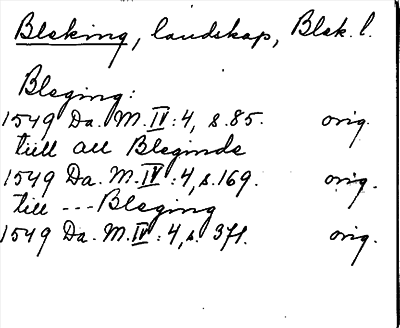 Bleking, landskap, Blek. l.
Bleging:
1549 Da. M. IV: 4, s. 85. orig.
tiill all Bleginde
1549 Da. M. IV: 4, s. 169. orig.
till --- Bleging
1549 Da. M. IV: 4, s. 371. orig.